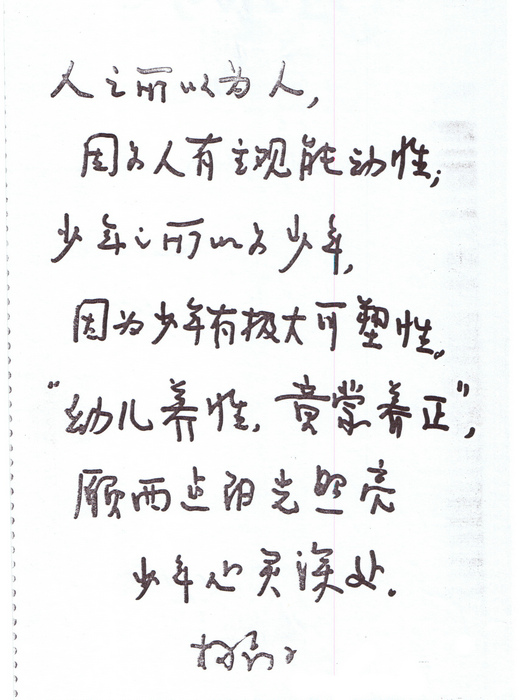 人之所以为人，
因为人有主观能动性；
少年之所以为少年，
因为少年有极大可塑性。
“幼儿养性，黄蒙养正”，
愿西边阳光照亮
少年心灵深处。